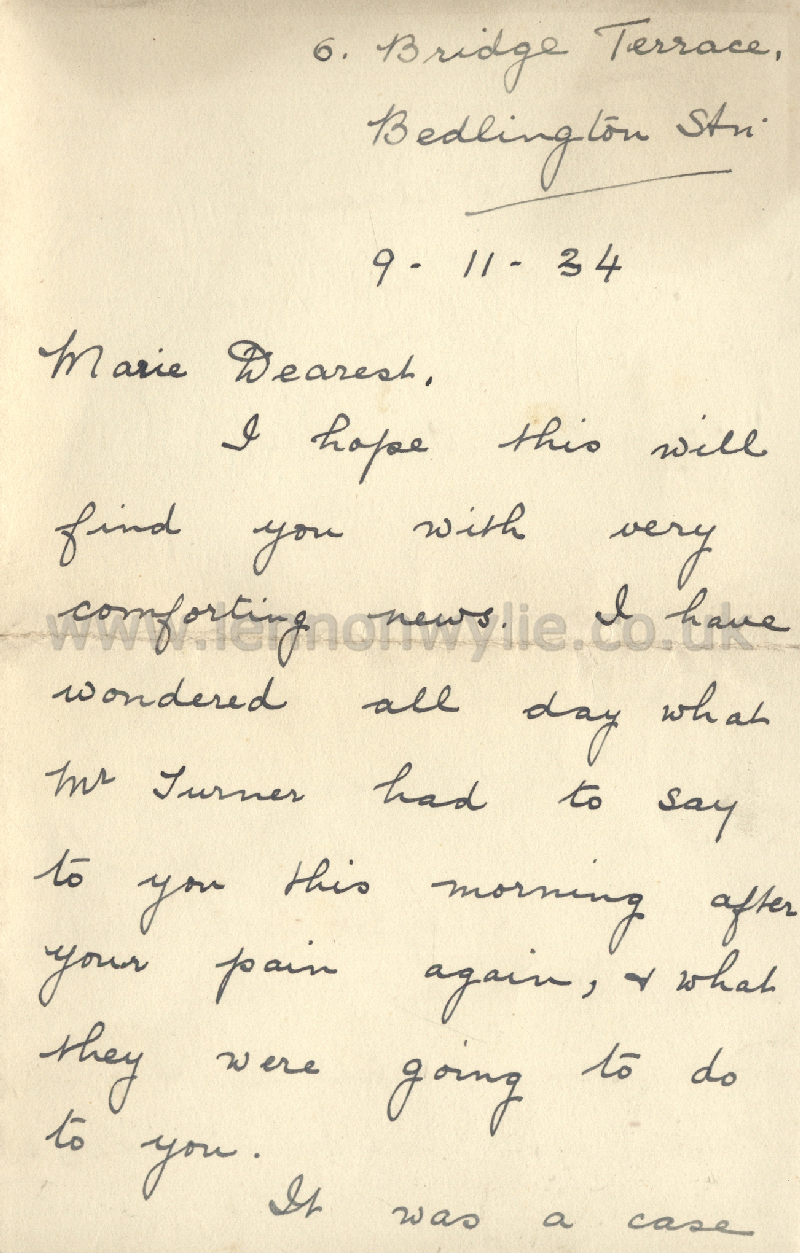 6. Bridge Terrace,
Bedlington Stn.
9 - 11 - 34
Marie Dearest,
I hope this will
find you with very
comforting news. I have
www.lennonwylie.co.uk
wondered all day what
Mr Turner had to say
to you this morning after
your pain again, & what
they were going to do
to you.
It was a case